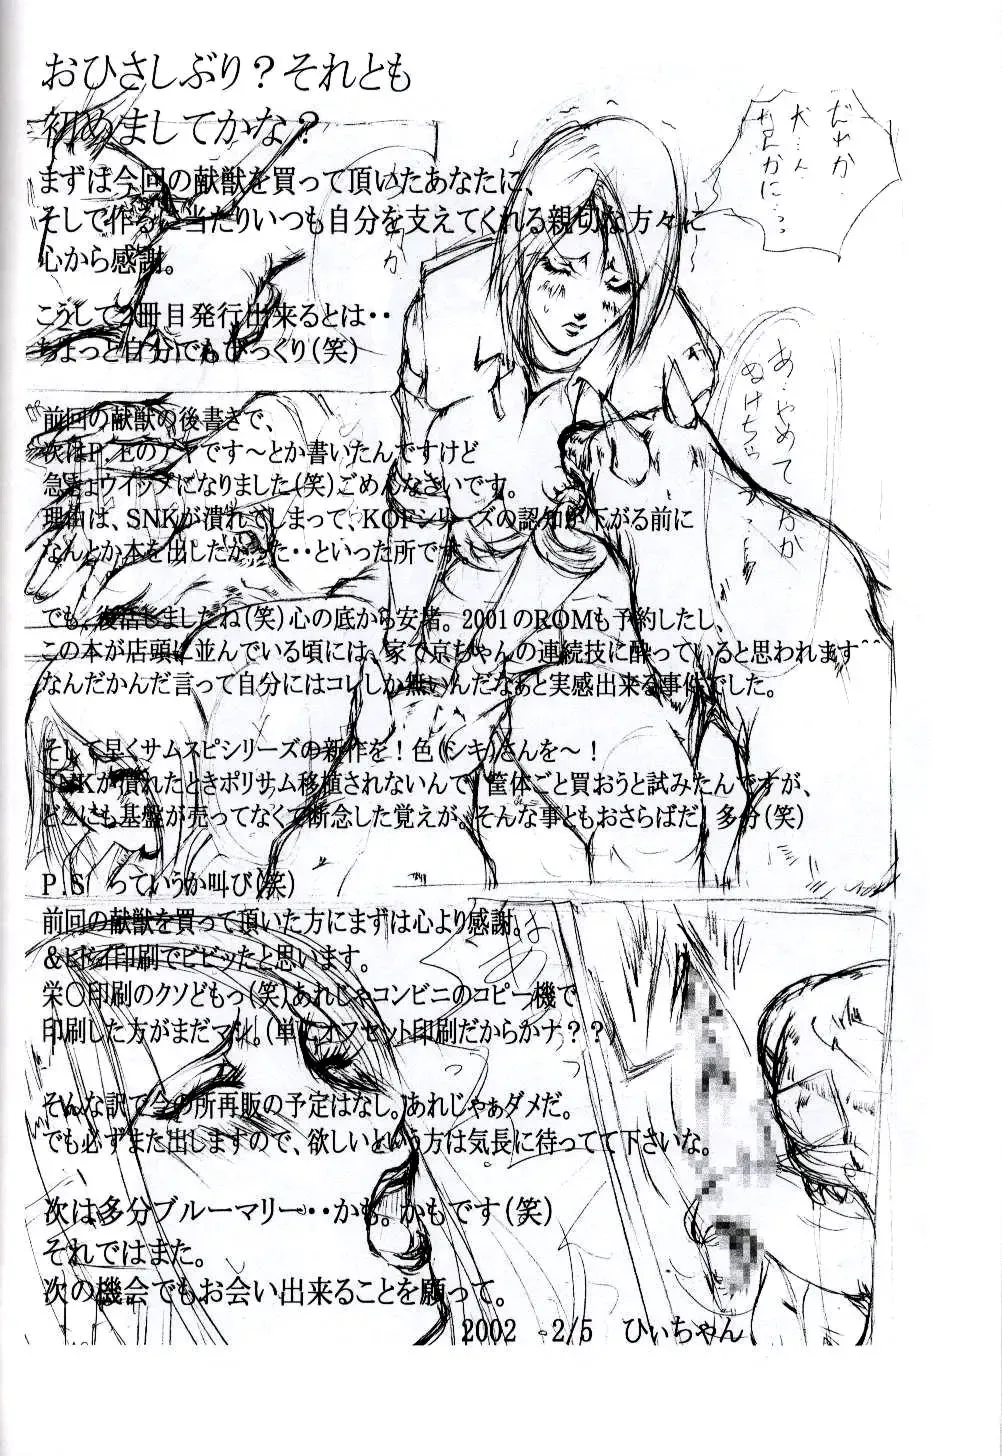 おひさしぶり？それとも
初めましてかな？
まずは今回の献獣を買って頂いたあなたに、
そして作るに当たりいつも自分を支えてくれる親切な方々に
心から感謝。
こうして2冊目発行出来るとは・・
ちょっと自分でもびっくり（笑）
前回の献獣の後書きで、
次はP.Eのアヤです～とか書いたんですけど
急きょウイップになりました（笑）ごめんなさいです。
理由は、SNKが潰れてしまって、KOFシリーズの認知が下がる前に
なんとか本を出したかった・・といった所です。
でも、復活しましたね（笑）心の底から安堵。2001のROMも予約したし、
この本が店頭に並んでいる頃には、家で京ちゃんの連続技に酔っていると思われます^^
なんだかんだ言って自分にはコレしか無いんだなぁと実感出来る事件でした。
そして早くサムスピシリーズの新作を！色（シキ）さんを～！
SNKが潰れたときポリサム移植されないんで、筐体ごと買おうと試みたんですが、
どこにも基盤が売ってなくて断念した覚えが。そんな事ともおさらばだ！多分（笑）
P.S　っていうか叫び（笑）
前回の献獣を買って頂いた方にまずは心より感謝。
＆ヒドイ印刷でビビッたと思います。
栄〇印刷のクソどもっ（笑）あれじゃコンビニのコピー機で
印刷した方がまだマシ。（単にオフセット印刷だからかナ？？）
そんな訳で今の所再販の予定はなし。あれじゃぁダメだ。
でも必ずまた出しますので、欲しいという方は気長に待ってて下さいな。
次は多分ブルーマリー・・かも。かもです（笑）
それではまた。
次の機会でもお会い出来ることを願って。
2002　2/5　ひぃちゃん
だれか
犬…ん
あ…やめて
ぬけちゃ